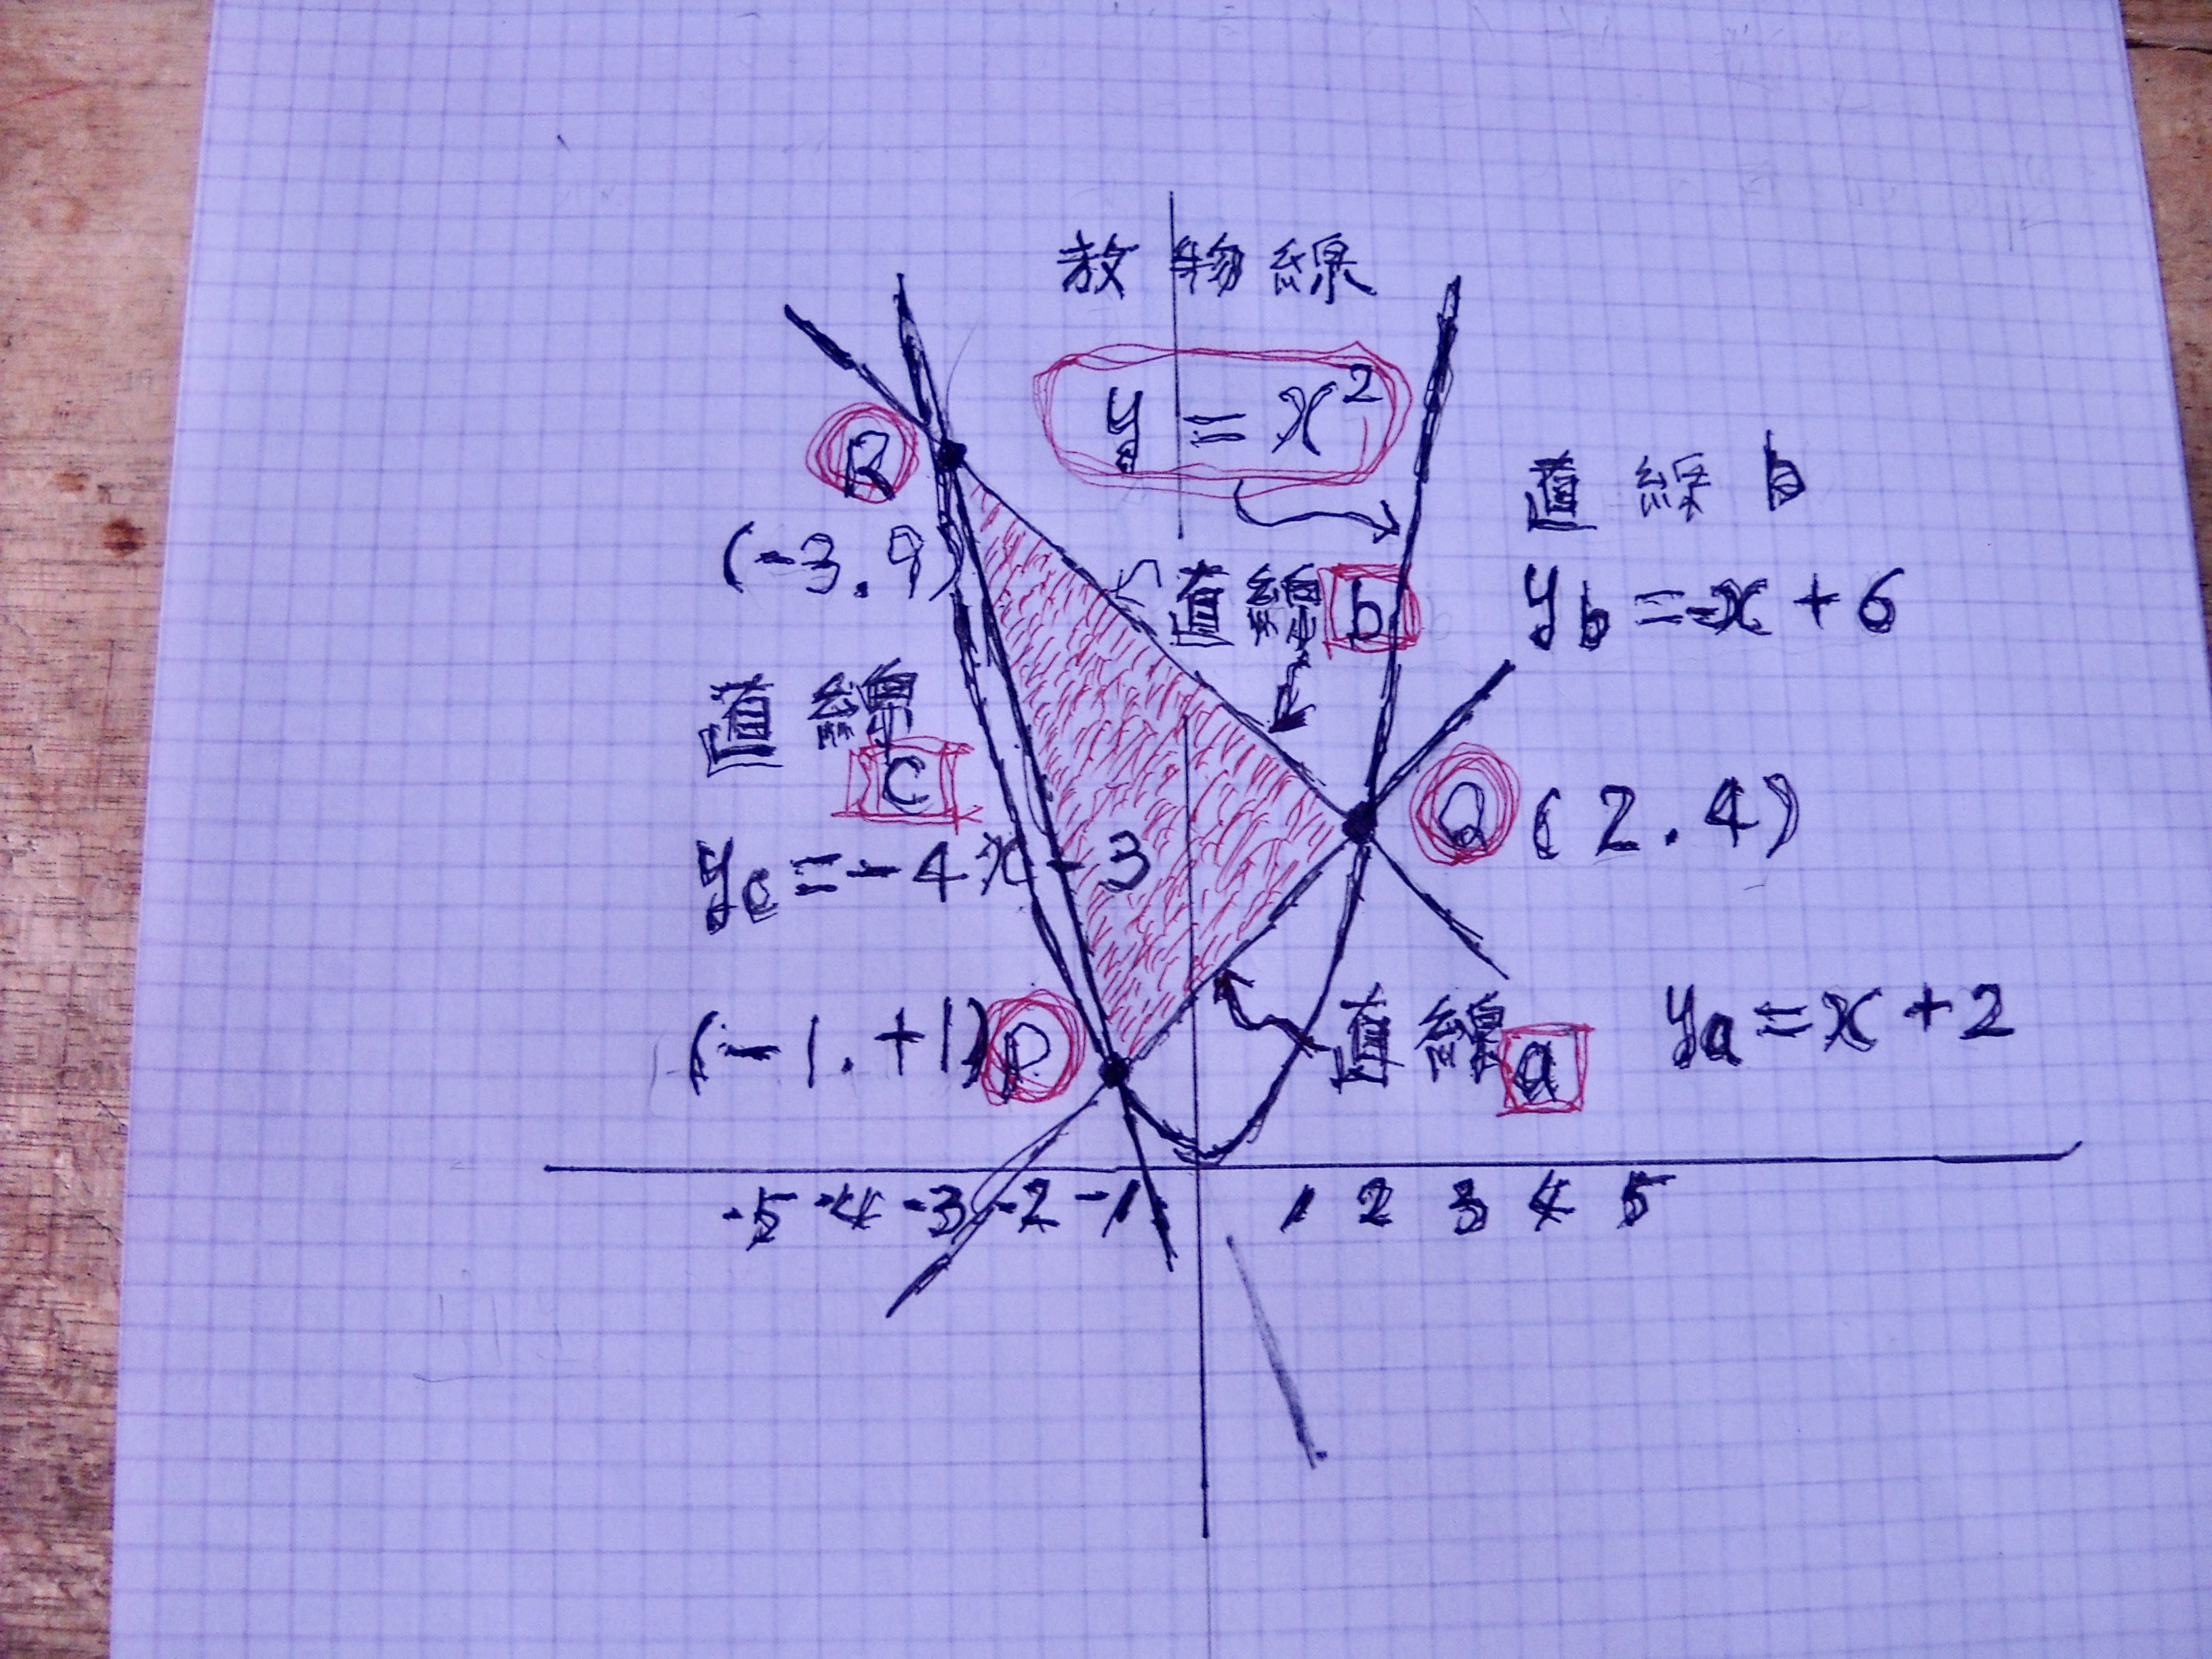 放物線
y = x²
R
(-3.9)
直線 b
y_b = -x + 6
直線 b
直線
c
y_c = -4x - 3
Q (2.4)
(-1.+1) P
直線 a
y_a = x + 2
-5 -4 -3 -2 -1 1 2 3 4 5